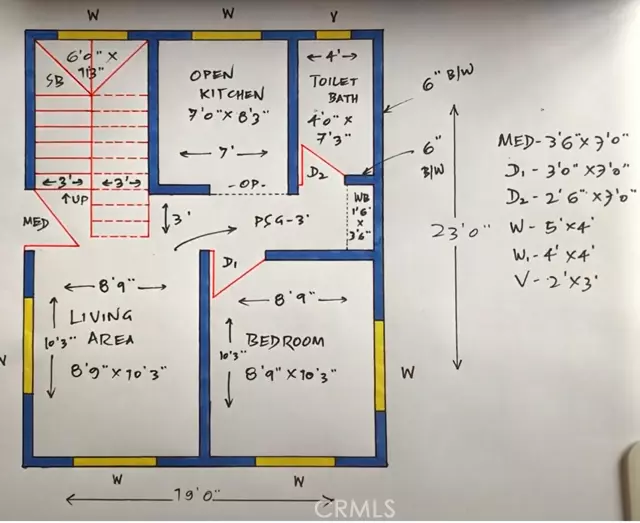 W
W
V
6'0" X
11'3"
SB
OPEN
KITCHEN
7'0" X 8'3"
7'
4'
TOILET
BATH
4'0" X
7'3"
6" B/W
6"
B/W
MED - 3'6" X 7'0"
D1 - 3'0" X 7'0"
D2 - 2'6" X 7'0"
W - 5' X 4'
W1 - 4' X 4'
V - 2' X 3'
3'
3'
↑UP
-OP-
D2
WB
1'6"
X
3'6"
MED
3'
PSG-3'
23'0"
D1
8'9"
8'9"
LIVING
AREA
10'3"
8'9" X 10'3"
BEDROOM
10'3"
8'9" X 10'3"
W
W
W
W
19'0"
CRMLS